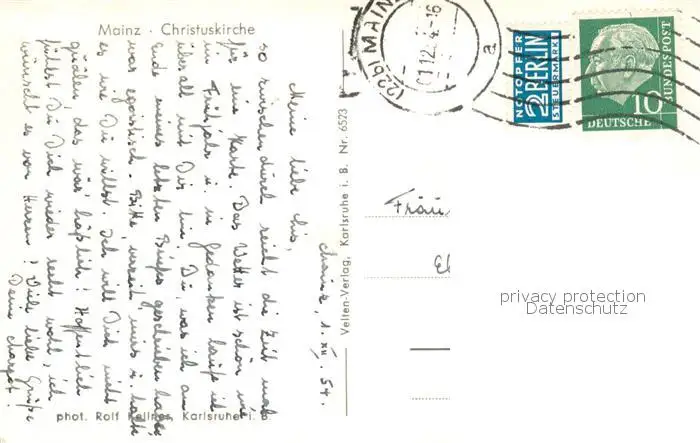 Mainz · Christuskirche
Mainz, 1. XII. 54.
Meine liebe
so zwischendurch reicht die Zeit mal
für eine Karte. Das Wetter ist schön wie
im Frühjahr u. in Gedanken laufe ich
überall mit Dir hin. Du, was ich am
Ende meines letzten Briefes geschrieben habe,
war egoistisch. Bitte verzeih mir's u. halte
es wie Du willst. Ich will Dich nicht
quälen, das wär' häßlich! Hoffentlich
fühlst Du Dich wieder recht wohl, ich
wünscht es von Herzen! Viele liebe Grüße
Deine
phot. Rolf Kellner, Karlsruhe i. B.
Velten-Verlag, Karlsruhe i. B. Nr. 6523
(22b) MAINZ
01.12.
-16
a
NOTOPFER
2 BERLIN
STEUERMARKE
DEUTSCHE
BUNDESPOST
10
Fräu
El
privacy protection
Datenschutz